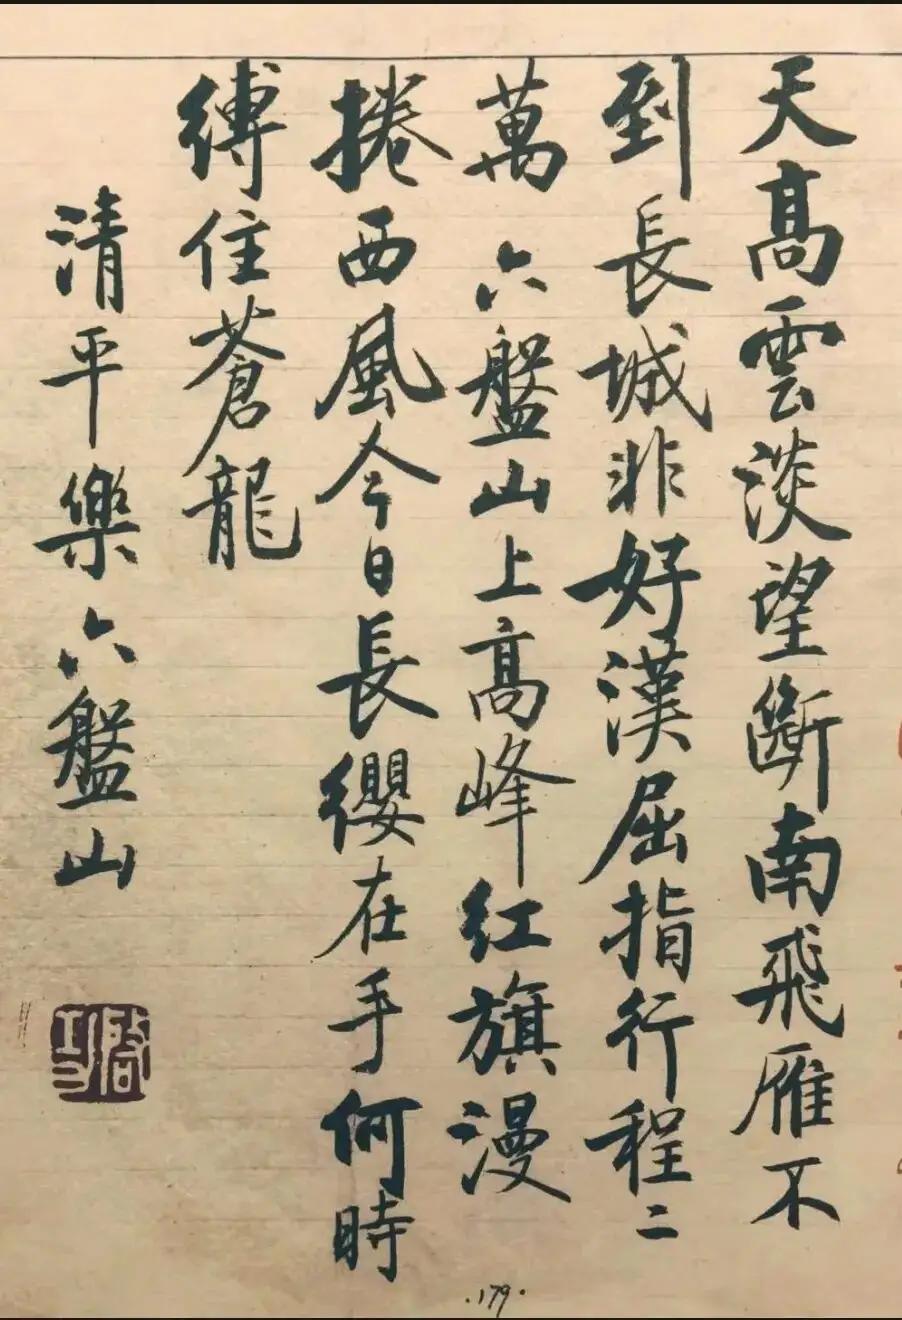 天高雲淡望斷南飛雁不
到長城非好漢屈指行程二
萬 六盤山上高峰紅旗漫
捲西風今日長纓在手何時
縛住蒼龍
清平樂六盤山
·179·